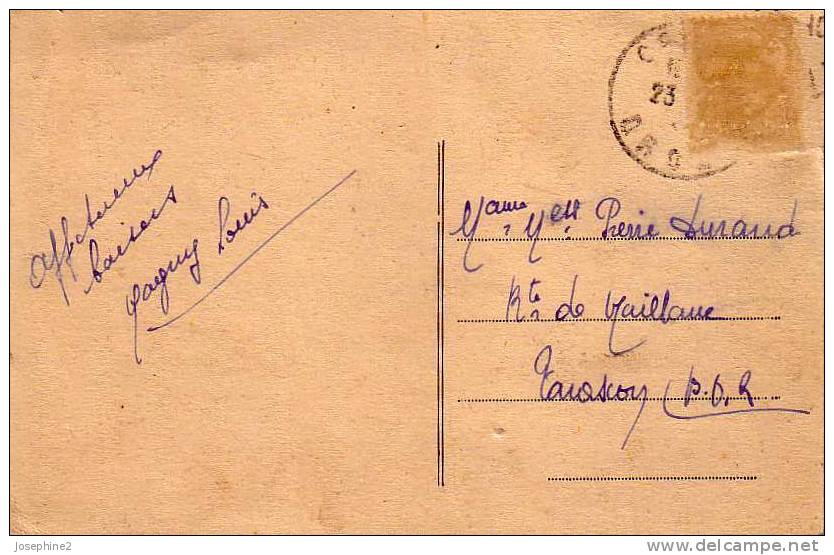 Affectueux
baisers
Maguy Louis
Mme Melle Pierre Durand
Rte de Maillane
Tarascon B.D.R
23
Josephine2
www.delcampe.net